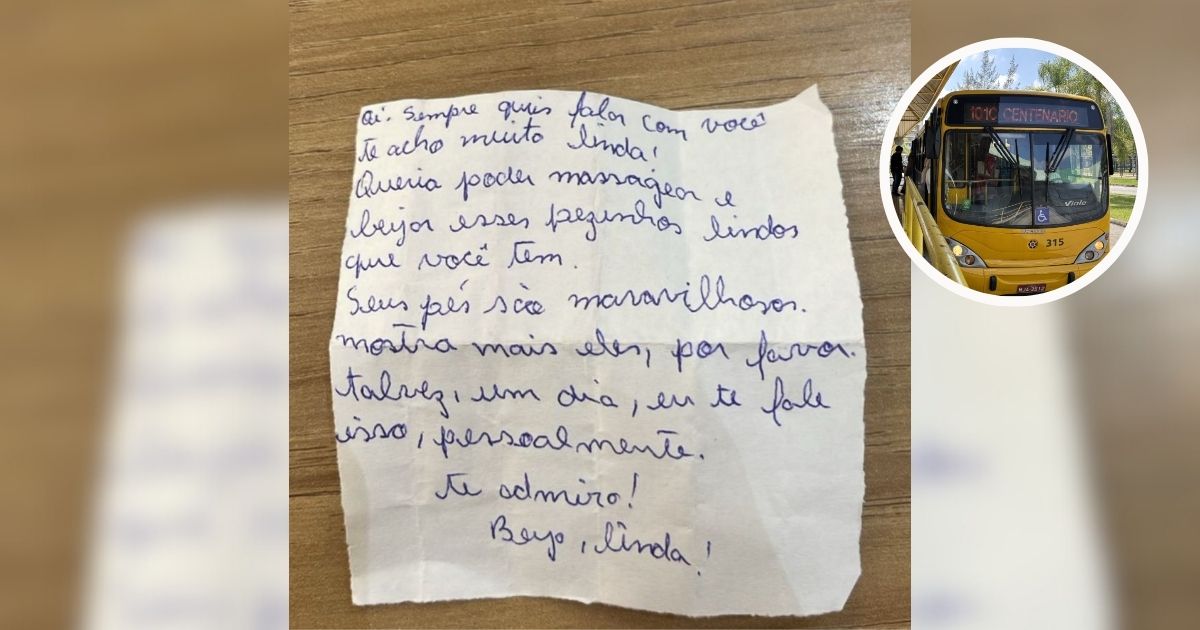 Oi. Sempre quis falar com você
te acho muito linda!
Queria poder massagear e
beijar esses pezinhos lindos
que você tem.
Seus pés são maravilhosos.
mostra mais eles, por favor.
talvez, um dia, eu te fale
isso, pessoalmente.
te admiro!
Beijo, linda!
1010 CENTENÁRIO
Viale
315